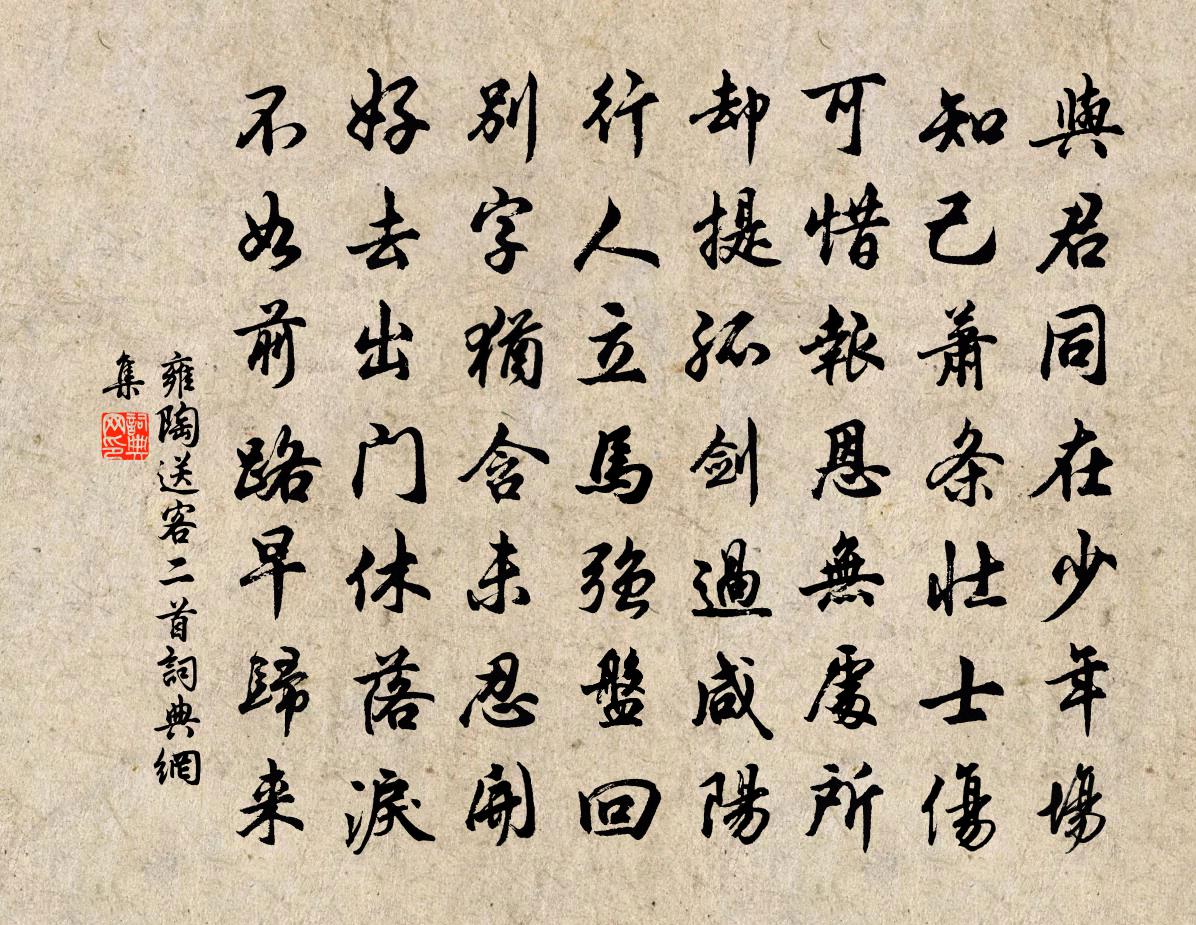 與君同在少年場
知己蕭条壮士傷
可惜報恩無處所
却提孤剑過咸陽
行人立馬強盤回
别字猶含未忍開
好去出门休落淚
不如前路早歸来
雍陶送客二首詞典網
集
詞典
网印